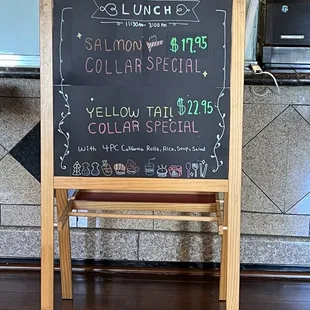 LUNCH
11:30AM - 3:00PM
SALMON $17.95
COLLAR SPECIAL
YELLOW TAIL $22.95
COLLAR SPECIAL
With 4PC California Rolls, Rice, Soup & Salad